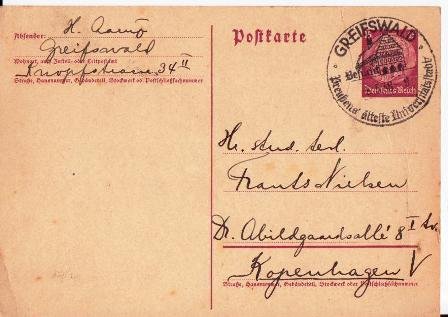 Absender: H.
Greifswald
Wohnort, auch Zustell- oder Leitpostamt
Knopfstrasse 34 II
Straße, Hausnummer, Gebäudeteil, Stockwerk od. Postschließfachnummer
Postkarte
GREIFSWALD
Deutsches Reich
Preußens älteste Universitätsstadt
Hr. stud. terl.
Frants Nielsen
Dr. Abildgaardsallé 8 I tv.
Kopenhagen V
Straße, Hausnummer, Gebäudeteil, Stockwerk oder Postschließfachnummer